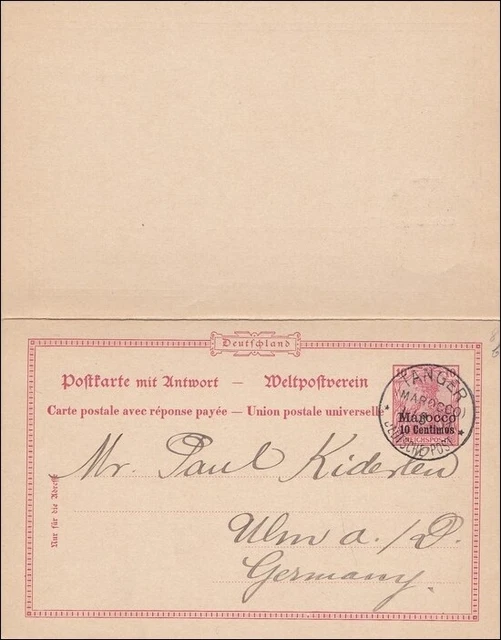 Deutschland
10 10
Postkarte mit Antwort — Weltpostverein
Carte postale avec réponse payée — Union postale universelle
TANGER
(MAROCCO)
Marocco
10 Centimos
REICHSPOST
DEUTSCHE POST
Nur für die Adresse
Mr. Paul Kiderlen
Ulm a./D.
Germany.